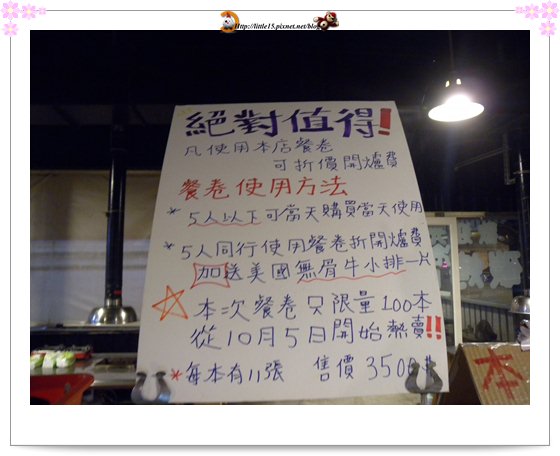 Http://little15.pixnet.net/blog
絕對值得!
凡使用本店餐卷
可折價開爐費
餐卷使用方法
*5人以下可當天購買當天使用
*5人同行使用餐卷折開爐費
加送美國無骨牛小排一片
☆本次餐卷只限量100本
從10月5日開始熱賣!!
*每本有11張 售價3500
本